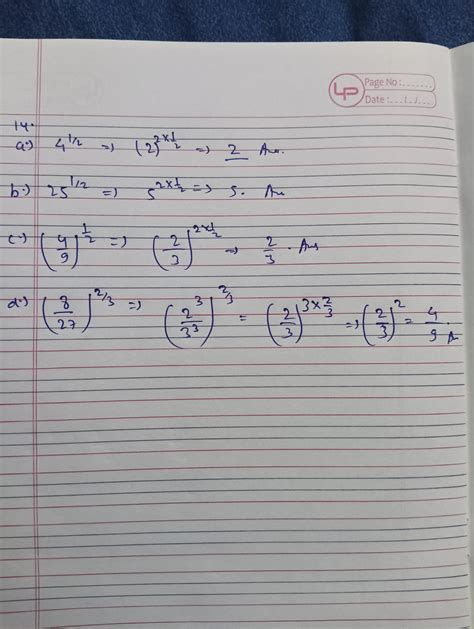 LP
Page No :.......
Date :..../..../....
14.
a.) 4^1/2 => (2)^2×1/2 => 2 Ans.
b.) 25^1/2 => 5^2×1/2 => 5. An
c.) (4/9)^1/2 => (2/3)^2×1/2 => 2/3. Ans
d.) (8/27)^2/3 => (2^3/3^3)^2/3 = (2/3)^3×2/3 => (2/3)^2 = 4/9. A